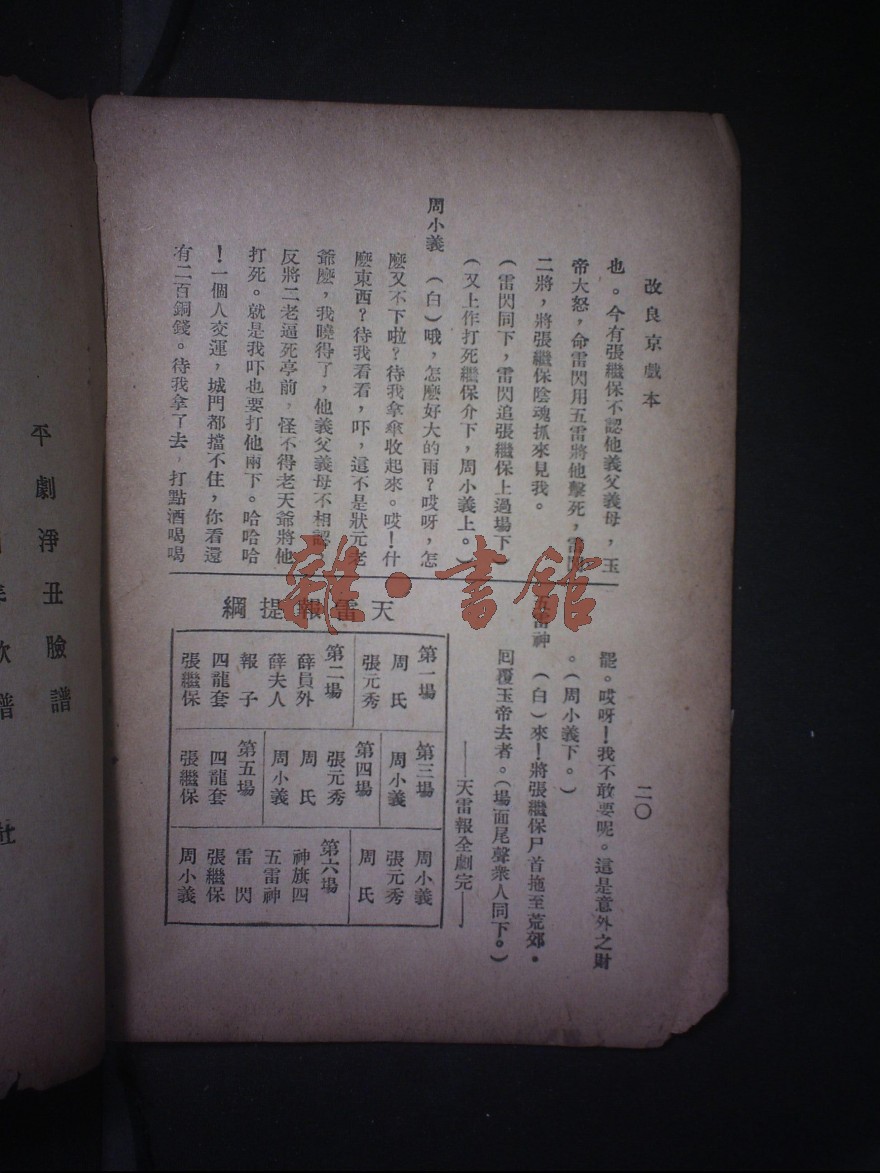 改良京戲本
二〇
也。今有張繼保不認他義父義母,玉
帝大怒,命雷閃用五雷將他擊死,雷閃
二將,將張繼保陰魂抓來見我。
(雷閃同下,雷閃追張繼保上過場下)
(又上作打死繼保介下,周小義上。)
周小義 (白)哦,怎麽好大的雨?哎呀,怎
麽又不下啦?待我拿傘收起來。哎!什
麽東西?待我看看,吓,這不是狀元老
爺麽,我曉得了,他義父義母不相認,
反將二老逼死亭前,怪不得老天爺將他
打死。就是我吓也要打他兩下。哈哈哈
!一個人交運,城門都擋不住,你看還
有二百銅錢。待我拿了去,打點酒喝喝
罷。哎呀!我不敢要呢。這是意外之財
。(周小義下。)
五雷神 (白)來!將張繼保尸首拖至荒郊。
回覆玉帝去者。(場面尾聲衆人同下。)
——天雷報全劇完——
天雷報提綱
第一場
周氏
張元秀
第二場
薛員外
薛夫人
報子
四龍套
張繼保
第三場
周小義
第四場
張元秀
周氏
周小義
第五場
四龍套
張繼保
周小義
張元秀
周氏
第六場
神旗四
五雷神
雷閃
張繼保
周小義
雜·書館
平劇淨丑臉譜
社